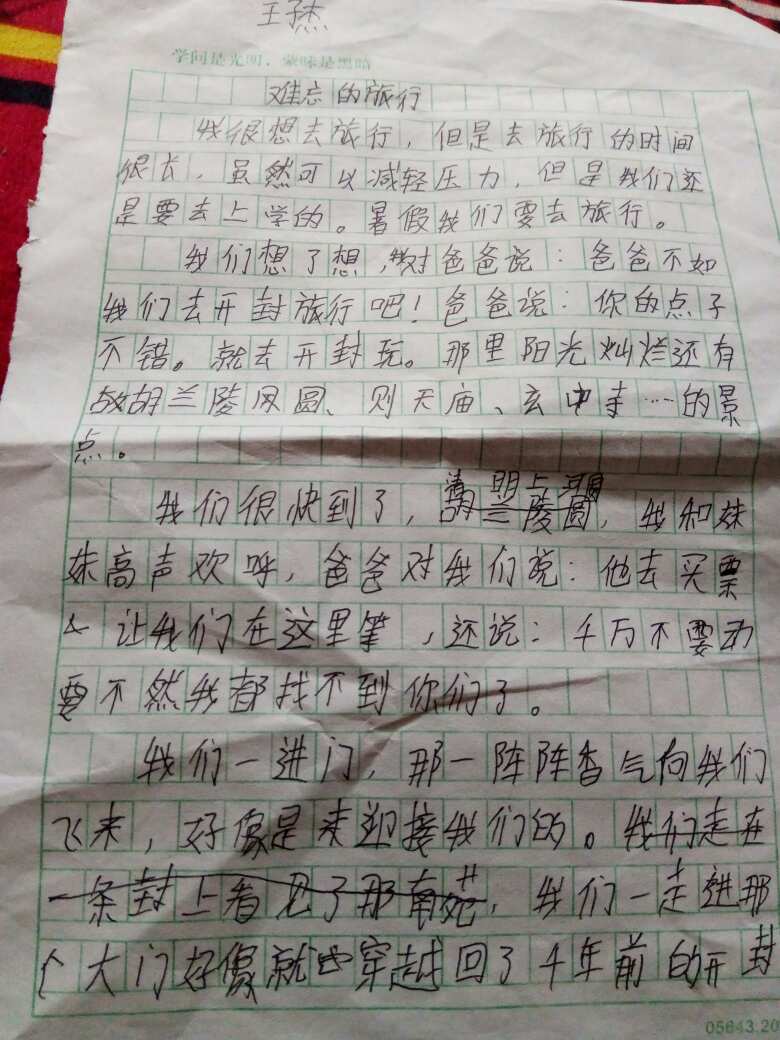 王子杰
学问是光明，蒙昧是黑暗
难忘的旅行
我很想去旅行，但是去旅行的时间
很长，虽然可以减轻压力，但是我们还
是要去上学的。暑假我们要去旅行。
我们想了想，对爸爸说：爸爸不如
我们去开封旅行吧！爸爸说：你的点子
不错。就去开封玩。那里阳光灿烂还有
胡兰陵园圆、则天庙、玄中寺……的景
点。
清明上河园
我们很快到了，胡兰陵圆，我和妹
妹高声欢呼，爸爸对我们说：他去买票
让我们在这里等，还说：千万不要动
要不然我都找不到你们了。
我们一进门，那一阵阵香气向我们
飞来，好像是来迎接我们的。我们走在
一条封上看见了那南花，我们一走进那
个大门好像就穿越回了千年前的开封
05643.20